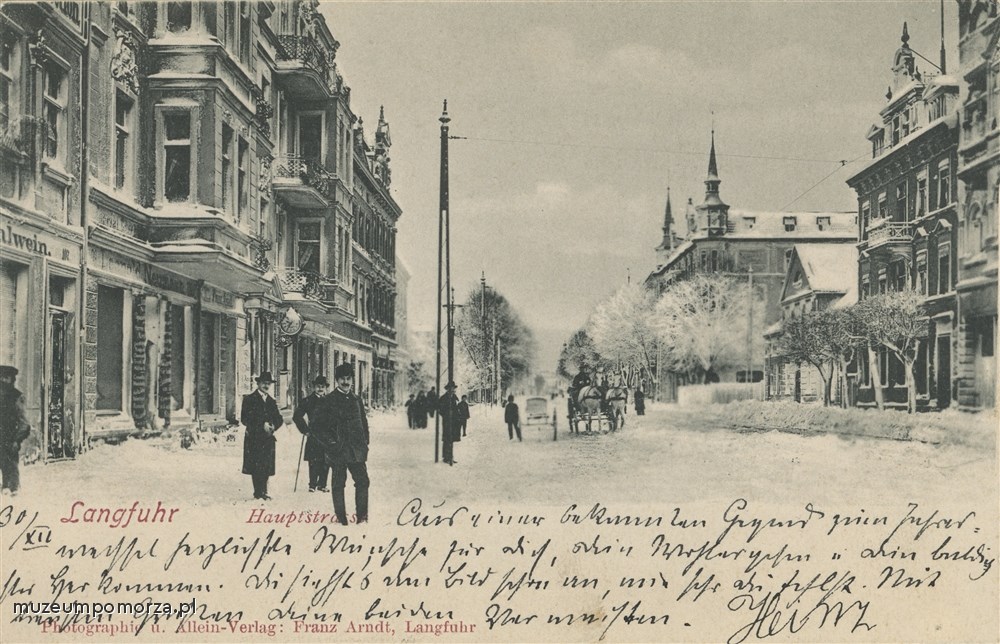 alwein.
Langfuhr
Hauptstrasse
30/XII
Aus einer bekannten Gegend zum Jahres-
wechsel herzlichste Wünsche für dich, dein Wohlergehen u dein baldig
Herkommen. Du siehst dem Bild schon an, wie sehr du fehlst. Mit
Grüßen deine beiden Verwaisten.
muzeumpomorza.pl
Photographie u. Allein-Verlag: Franz Arndt, Langfuhr